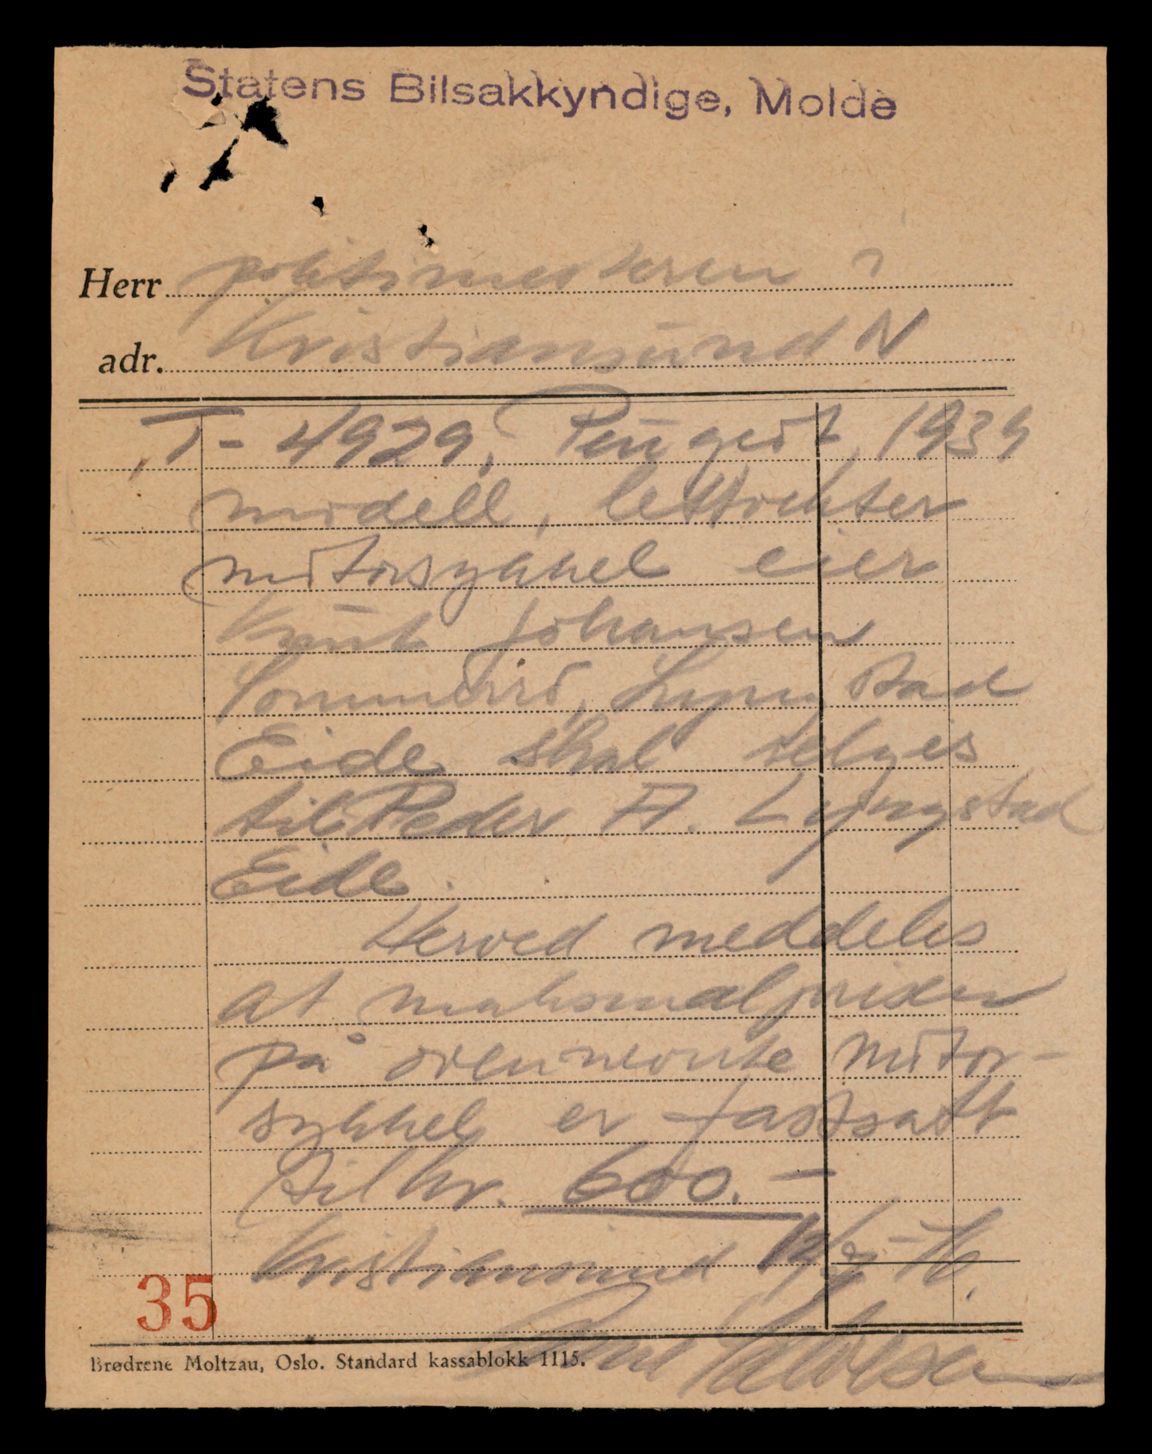 Statens Bilsakkyndige, Molde
Herr politimesteren i
adr. Kristiansund N
T-4929, Peugeot, 1939
modell, lettvekter
motorsykkel eier
Knut Johansen
Eide skal selges
til Peder A. Lyngstad
Eide.
Herved meddeles
at maksimalprisen
på ovennevnte motor-
sykkel er fastsatt
til kr. 600.-
Kristiansund
35
Brødrene Moltzau, Oslo. Standard kassablokk 1115.